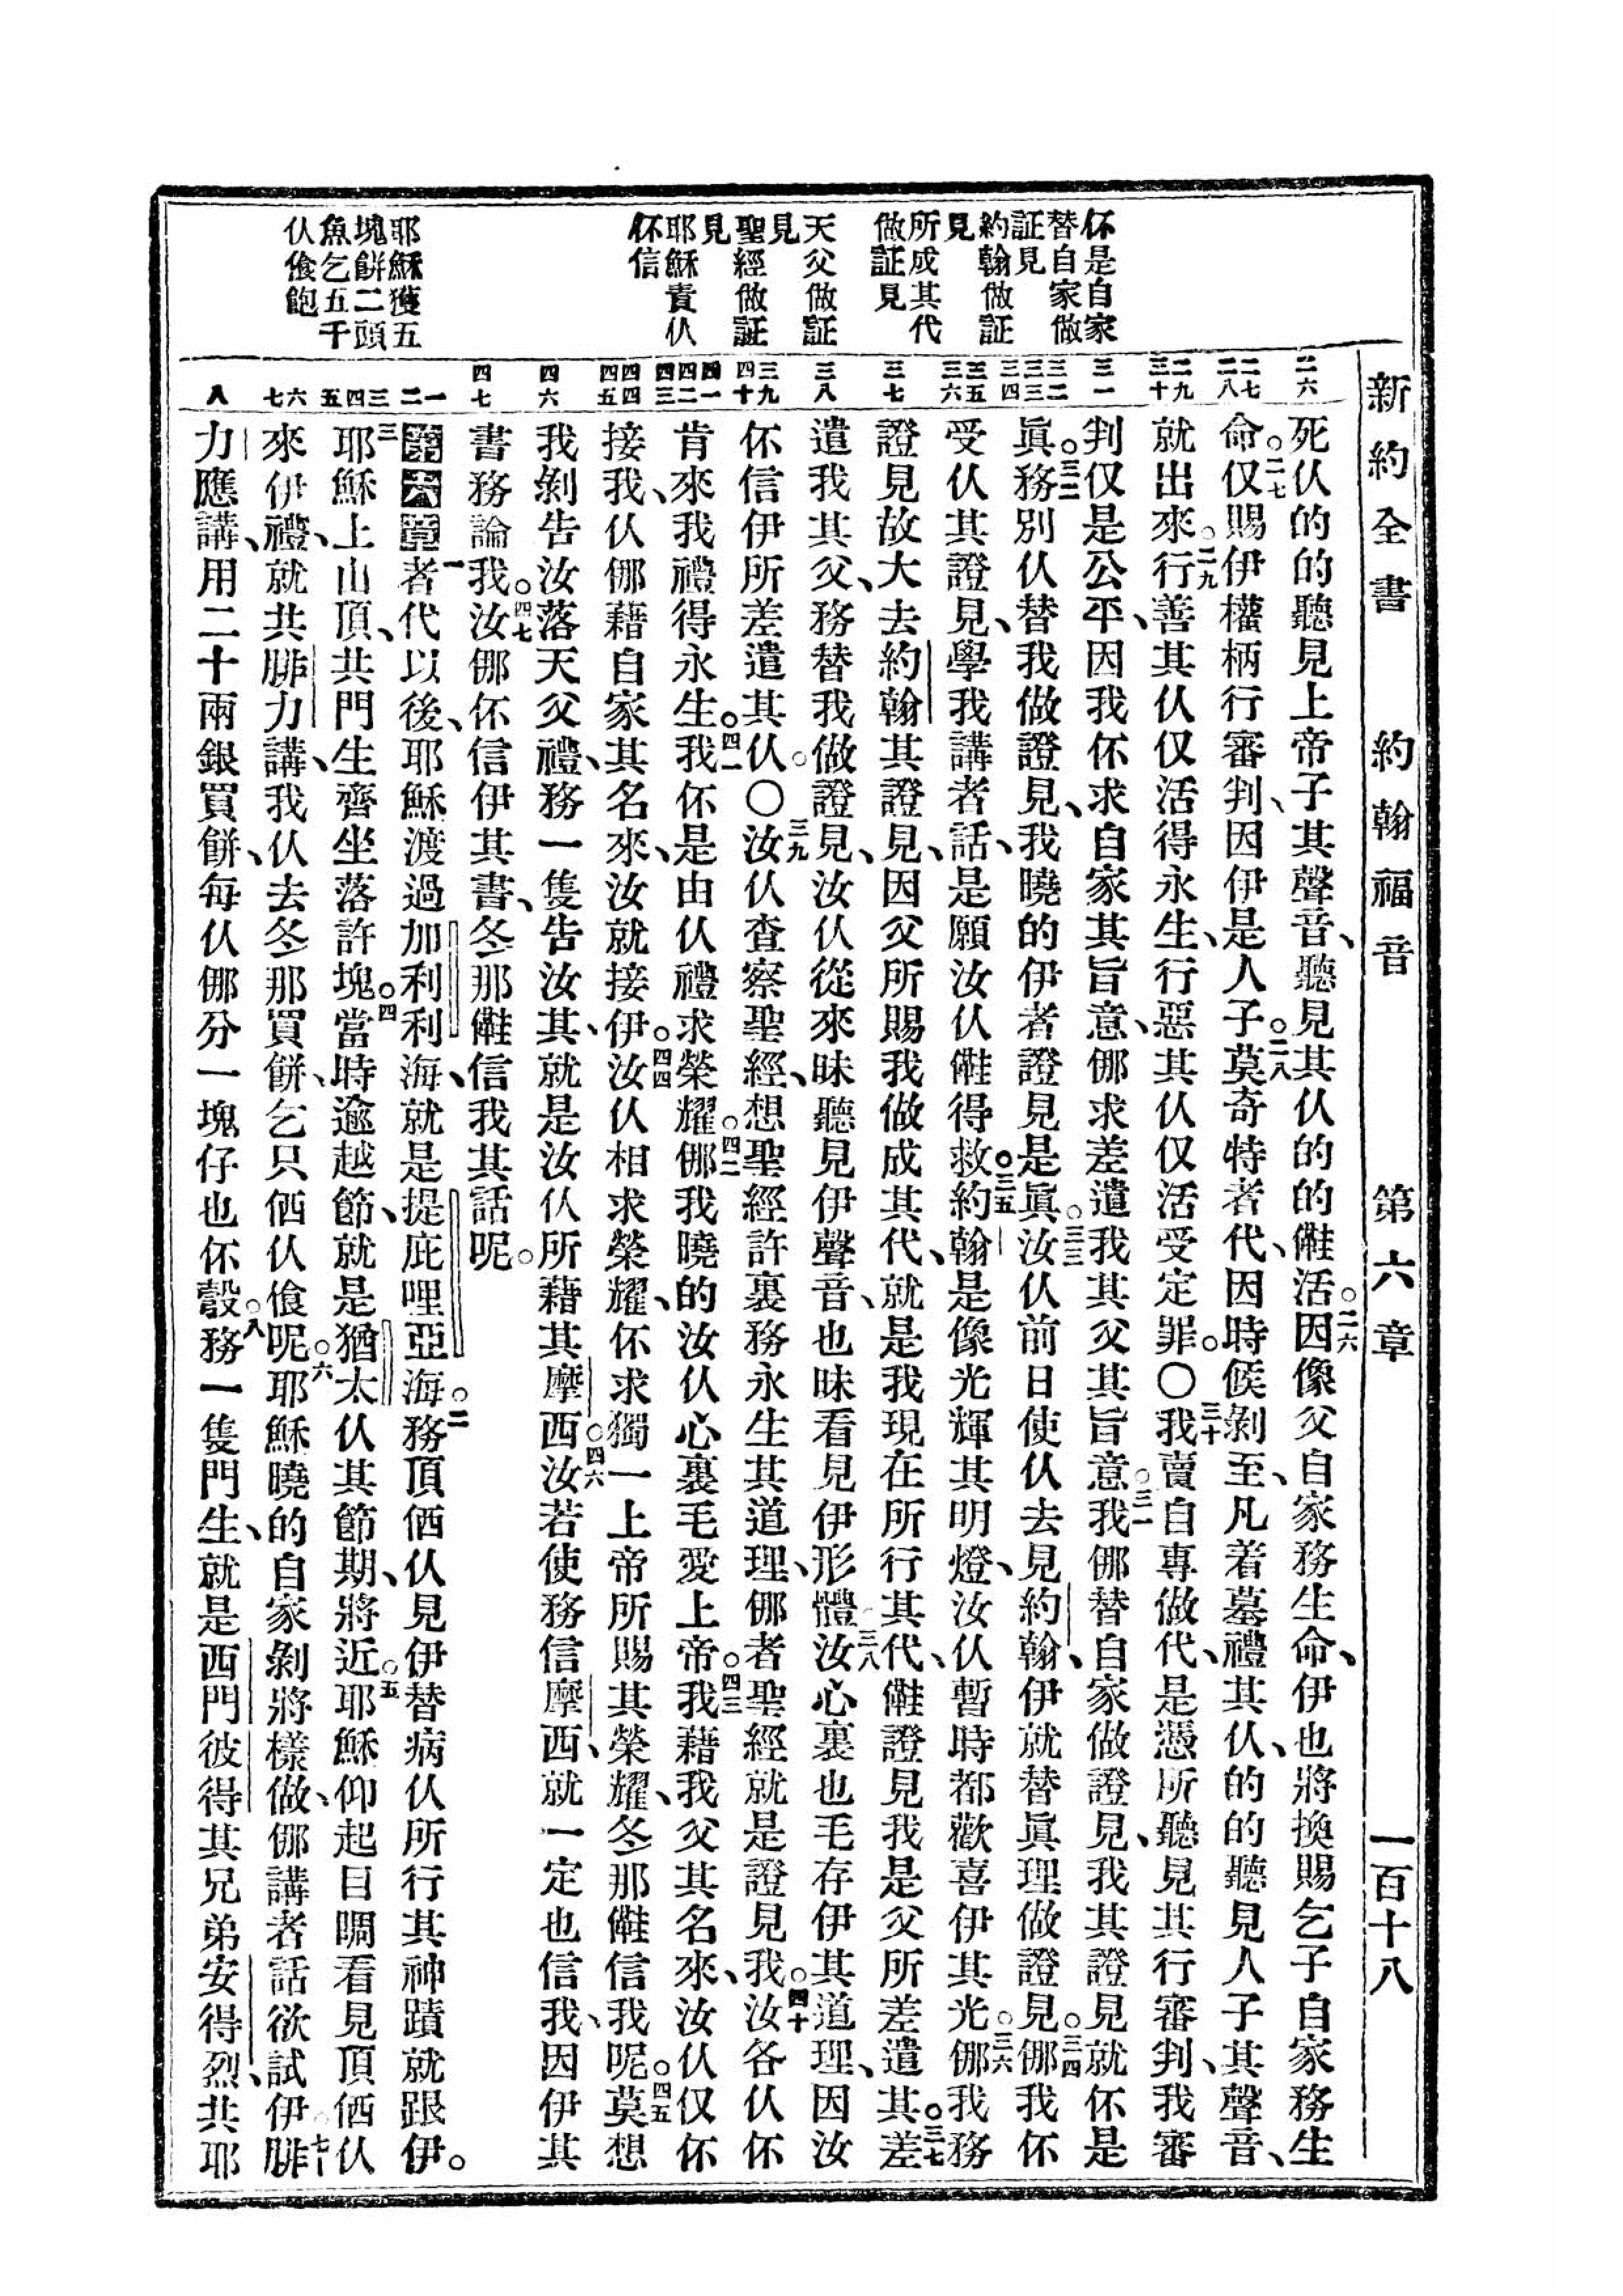 新約全書 約翰福音 第六章 一百十八
伓是自家
替自家做
証見
約翰做証
見
所成其代
做証見
天父做証
見
聖經做証
見
耶穌責仈
伓信
耶穌獲五
塊餅二頭
魚乞五千
仈飧飽
二六
二七 二八
二九 三十
三一
三二 三三 三四
三五 三六
三七
三八
三九 四十
四一 四二 四三
四四 四五
四六
四七
一 二
三 四 五
六 七
八
死仈的的聽見上帝子其聲音、聽見其仈的的㒕活。二六因像父自家務生命、伊也將換賜乞子自家務生
命。二七仅賜伊權柄行審判、因伊是人子。二八莫奇特者代、因時候剝至、凡着墓禮其仈、的的聽見人子其聲音、
就出來。二九行善其仈仅活得永生、行惡其仈仅活受定罪。〇三十我賣自專做代、是憑所聽見其行審判、我審
判仅是公平、因我伓求自家其旨意、㑚求差遣我其父其旨意。三一我㑚替自家做證見、我其證見就伓是
眞。三二務別仈替我做證見、我曉的伊者證見是眞。三三汝仈前日使仈去見約翰、伊就替眞理做證見。三四㑚我伓
受仈其證見、學我講者話、是願汝仈㒕得救。三五約翰是像光輝其明燈、汝仈暫時都歡喜伊其光。三六㑚我務
證見故大去約翰其證見、因父所賜我做成其代、就是我現在所行其代、㒕證見我是父所差遣其。三七差
遣我其父、務替我做證見、汝仈從來昧聽見伊聲音、也昧看見伊形體。三八汝心裏也毛存伊其道理、因汝
伓信伊所差遣其仈。〇三九汝仈查察聖經、想聖經許裏務永生其道理、㑚者聖經就是證見我。四十汝各仈伓
肯來我禮得永生。四一我伓是由仈禮求榮耀。四二㑚我曉的汝仈心裏毛愛上帝。四三我藉我父其名來、汝仈仅伓
接我、仈㑚藉自家其名來、汝就接伊。四四汝仈相求榮耀、伓求獨一上帝所賜其榮耀、冬那㒕信我呢。四五莫想
我剝告汝落天父禮、務一隻告汝其、就是汝仈所藉其摩西。四六汝若使務信摩西、就一定也信我、因伊其
書務論我。四七汝㑚伓信伊其書、冬那㒕信我其話呢。
第六章一者代以後、耶穌渡過加利利海、就是提庇哩亞海。二務頂𠌥仈見伊替病仈所行其神蹟就跟伊。
三耶穌上山頂、共門生齊坐落許塊。四當時逾越節、就是猶太仈其節期、將近。五耶穌仰起目睭看見頂𠌥仈
來伊禮、就共腓力講、我仈去冬那買餅、乞只𠌥仈飧呢。六耶穌曉的自家剝將樣做、㑚講者話欲試伊。七腓
力應講、用二十兩銀買餅、每仈㑚分一塊仔也伓彀。八務一隻門生、就是西門彼得其兄弟安得烈、共耶